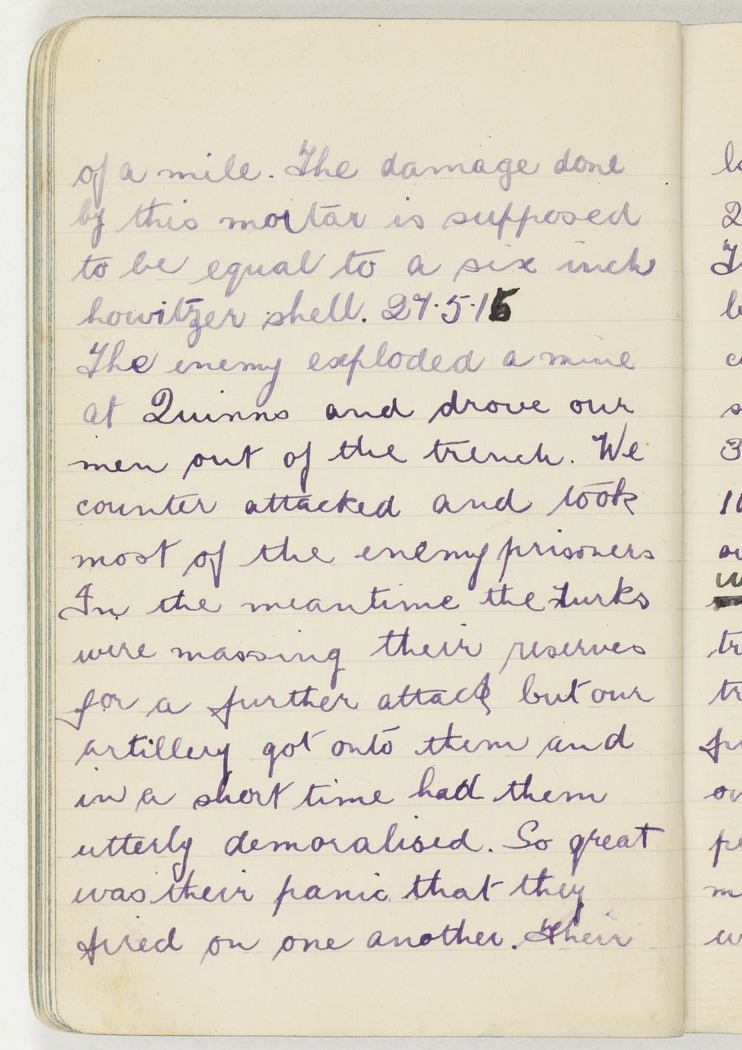 of a mile. The damage done
by this mortar is supposed
to be equal to a six inch
howitzer shell. 27.5.15
The enemy exploded a mine
at Quinns and drove our
men out of the trench. We
counter attacked and took
most of the enemy prisoners
In the meantime the Turks
were massing their reserves
for a further attack but our
artillery got onto them and
in a short time had them
utterly demoralised. So great
was their panic that they
fired on one another. Their